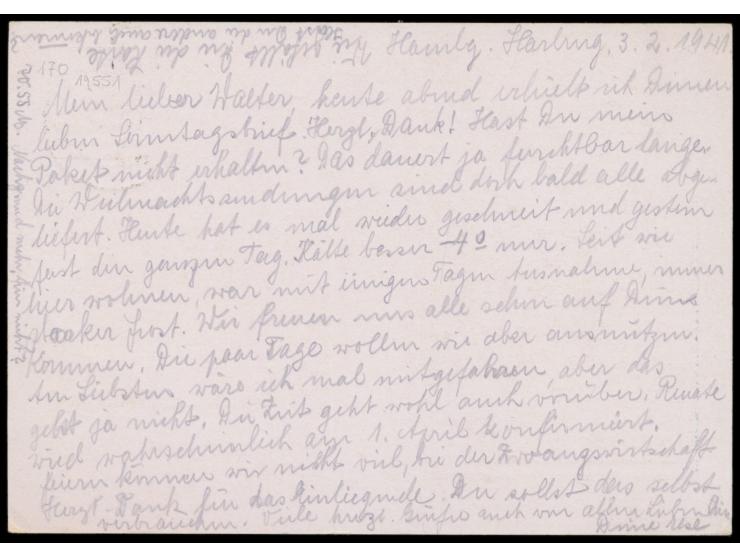 Hambg. Harburg, 3. 2. 1941.
170
19551
Mein lieber Walter, heute abend erhielt ich Deinen
lieben Sonntagsbrief. Herzl. Dank! Hast Du mein
Paket nicht erhalten? Das dauert ja furchtbar lange.
Die Weihnachtssendungen sind doch bald alle abge-
liefert. Heute hat es mal wieder geschneit und gestern
fast den ganzen Tag. Kälte besser -4° nur. Seit wir
hier wohnen, war mit einigen Tagen Ausnahme, immer
starker Frost. Wir freuen uns alle sehr auf Dein
Kommen. Die paar Tage wollen wir aber ausnutzen.
Am Liebsten wäre ich mal mitgefahren, aber das
geht ja nicht. Die Zeit geht wohl auch vorüber. Renate
wird wahrscheinlich am 1. April konfirmiert.
feiern können wir nicht viel, bei der Zwangswirtschaft
Herzl. Dank für das Einliegende. Du sollst das selbst
verbrauchen. Viele herzl. Grüße auch von allen Lieben
Deine Ilse
Wie gefällt Dir die Karte
Hast Du die andere auch bekommen?